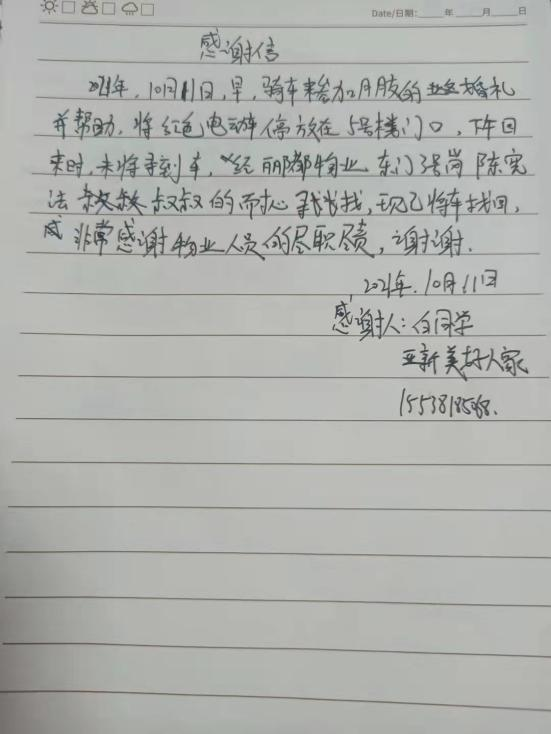 Date/日期: 年 月 日
感谢信
2021年,10月11日,早,骑车来参加朋友的婚礼
并帮助,将红色电动车停放在5号楼门口,下午回
来时,未将寻到车,经丽都物业东门3号岗陈宪
法叔叔的耐心寻找,现已将车找回,
非常感谢物业人员的尽职尽责,谢谢.
2021年.10月11日
感谢人:白同学
亚新美好人家